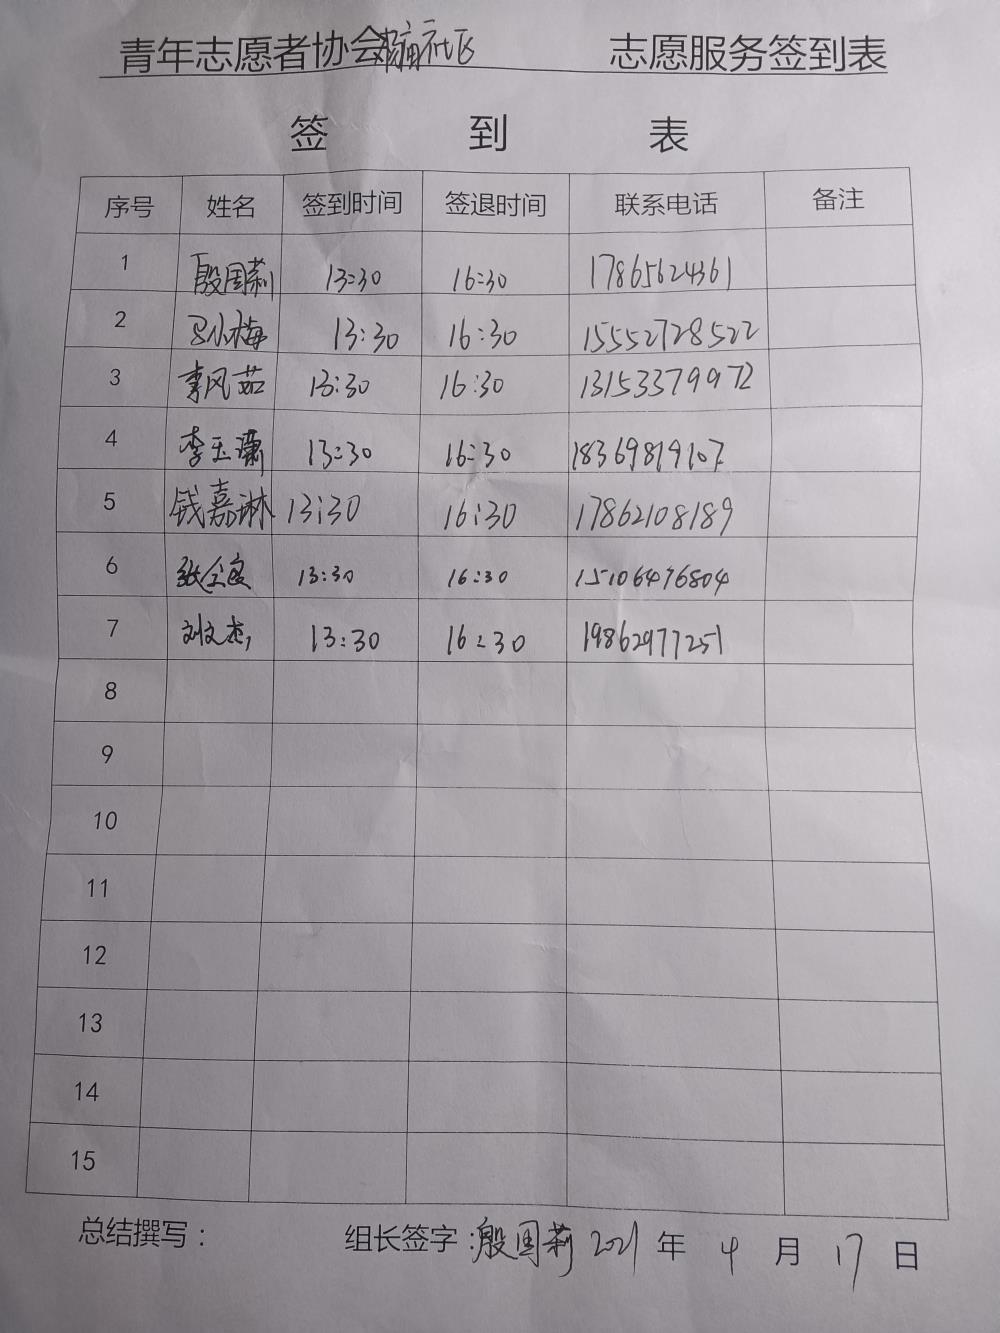 青年志愿者协会 社区 志愿服务签到表
签 到 表
序号 姓名 签到时间 签退时间 联系电话 备注
1 殷国莉 13:30 16:30 17865624361
2 小梅 13:30 16:30 15552728522
3 李风茹 13:30 16:30 13153379972
4 李玉潇 13:30 16:30 18369819107
5 钱嘉琳 13:30 16:30 17862108189
6 张 13:30 16:30 15106476804
7 刘文杰 13:30 16:30 19862977251
8
9
10
11
12
13
14
15
总结撰写: 组长签字:殷国莉 2021 年 4 月 17 日